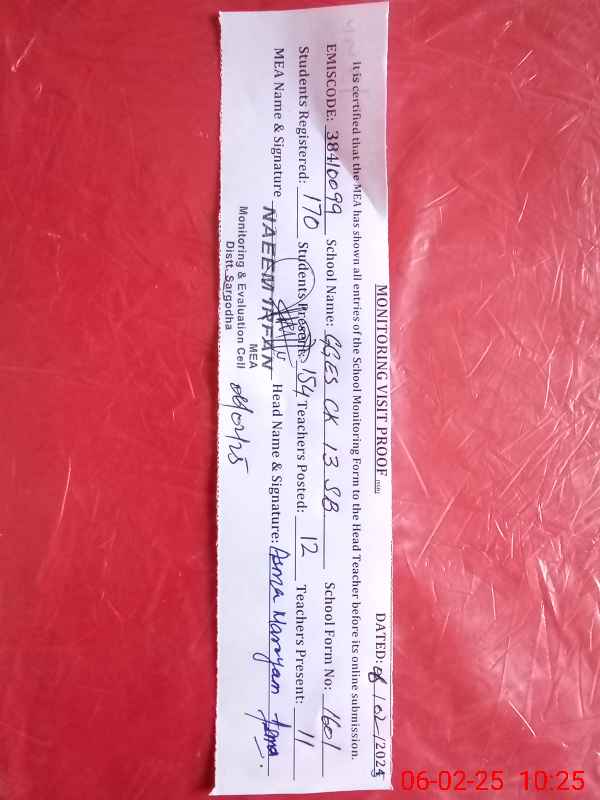 MONITORING VISIT PROOF DATED: 06/02/2025
It is certified that the MEA has shown all entries of the School Monitoring Form to the Head Teacher before its online submission.
EMISCODE: 38410099 School Name: GGES CK 13 SB School Form No: 1601
Students Registered: 170 Students Present: 154 Teachers Posted: 12 Teachers Present: 11
MEA Name & Signature NAEEM IRFAN Head Name & Signature: Asma Maryam Asma
MEA
Monitoring & Evaluation Cell
Distt. Sargodha
06/02/25
06-02-25 10:25